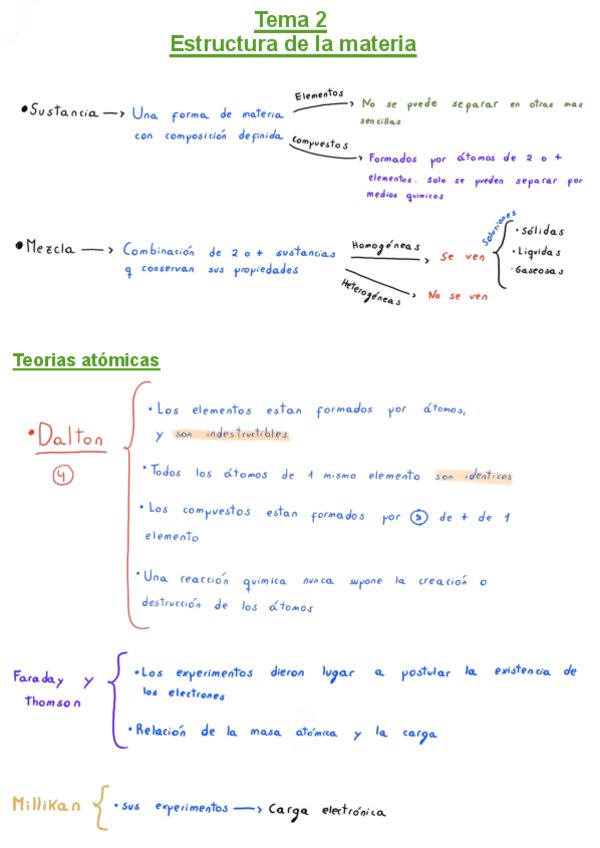 Tema 2
Estructura de la materia
•Sustancia → Una forma de materia
con composición definida
Elementos
No se puede separar en otras mas
sencillas
Compuestos
Formados por átomos de 2 o +
elementos. Solo se pueden separar por
medios químicos
•Mezcla → Combinación de 2 o + sustancias
q conservan sus propiedades
Homogéneas
Se ven
Soluciones
•Sólidas
•Liquidas
•Gaseosas
Heterogéneas
No se ven
Teorias atómicas
•Dalton
4
•Los elementos estan formados por átomos,
y son indestructibles
•Todos los átomos de 1 mismo elemento son identicos
•Los compuestos estan formados por de + de 1
elemento
•Una reacción quimica nunca supone la creación o
destrucción de los átomos
Faraday y
Thomson
•Los experimentos dieron lugar a postular la existencia de
los electrones
•Relación de la masa atómica y la carga
Millikan
•sus experimentos → Carga electrónica